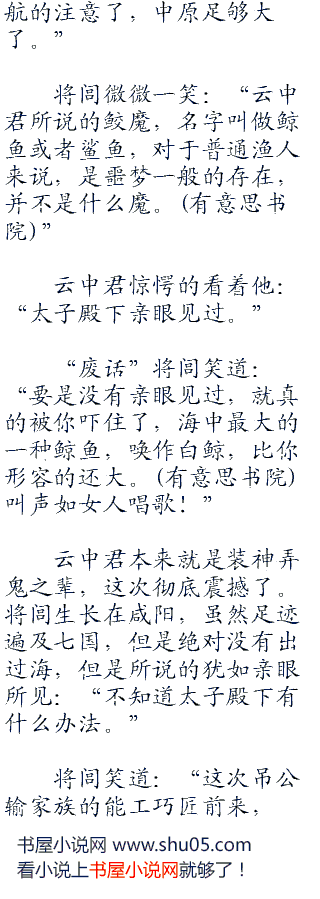 航的注意了，中原足够大
了。”
将闾微微一笑：“云中
君所说的鲛魔，名字叫做鲸
鱼或者鲨鱼，对于普通渔人
来说，是噩梦一般的存在，
并不是什么魔。(有意思书
院)”
云中君惊愕的看着他：
“太子殿下亲眼见过。”
“废话”将闾笑道：
“要是没有亲眼见过，就真
的被你吓住了，海中最大的
一种鲸鱼，唤作白鲸，比你
形容的还大。(有意思书院)
叫声如女人唱歌！”
云中君本来就是装神弄
鬼之辈，这次彻底震撼了。
将闾生长在咸阳，虽然足迹
遍及七国，但是绝对没有出
过海，但是所说的犹如亲眼
所见：“不知道太子殿下有
什么办法。”
将闾笑道：“这次吊公
输家族的能工巧匠前来，
书屋小说网 www.shu05.com
看小说上书屋小说网就够了！